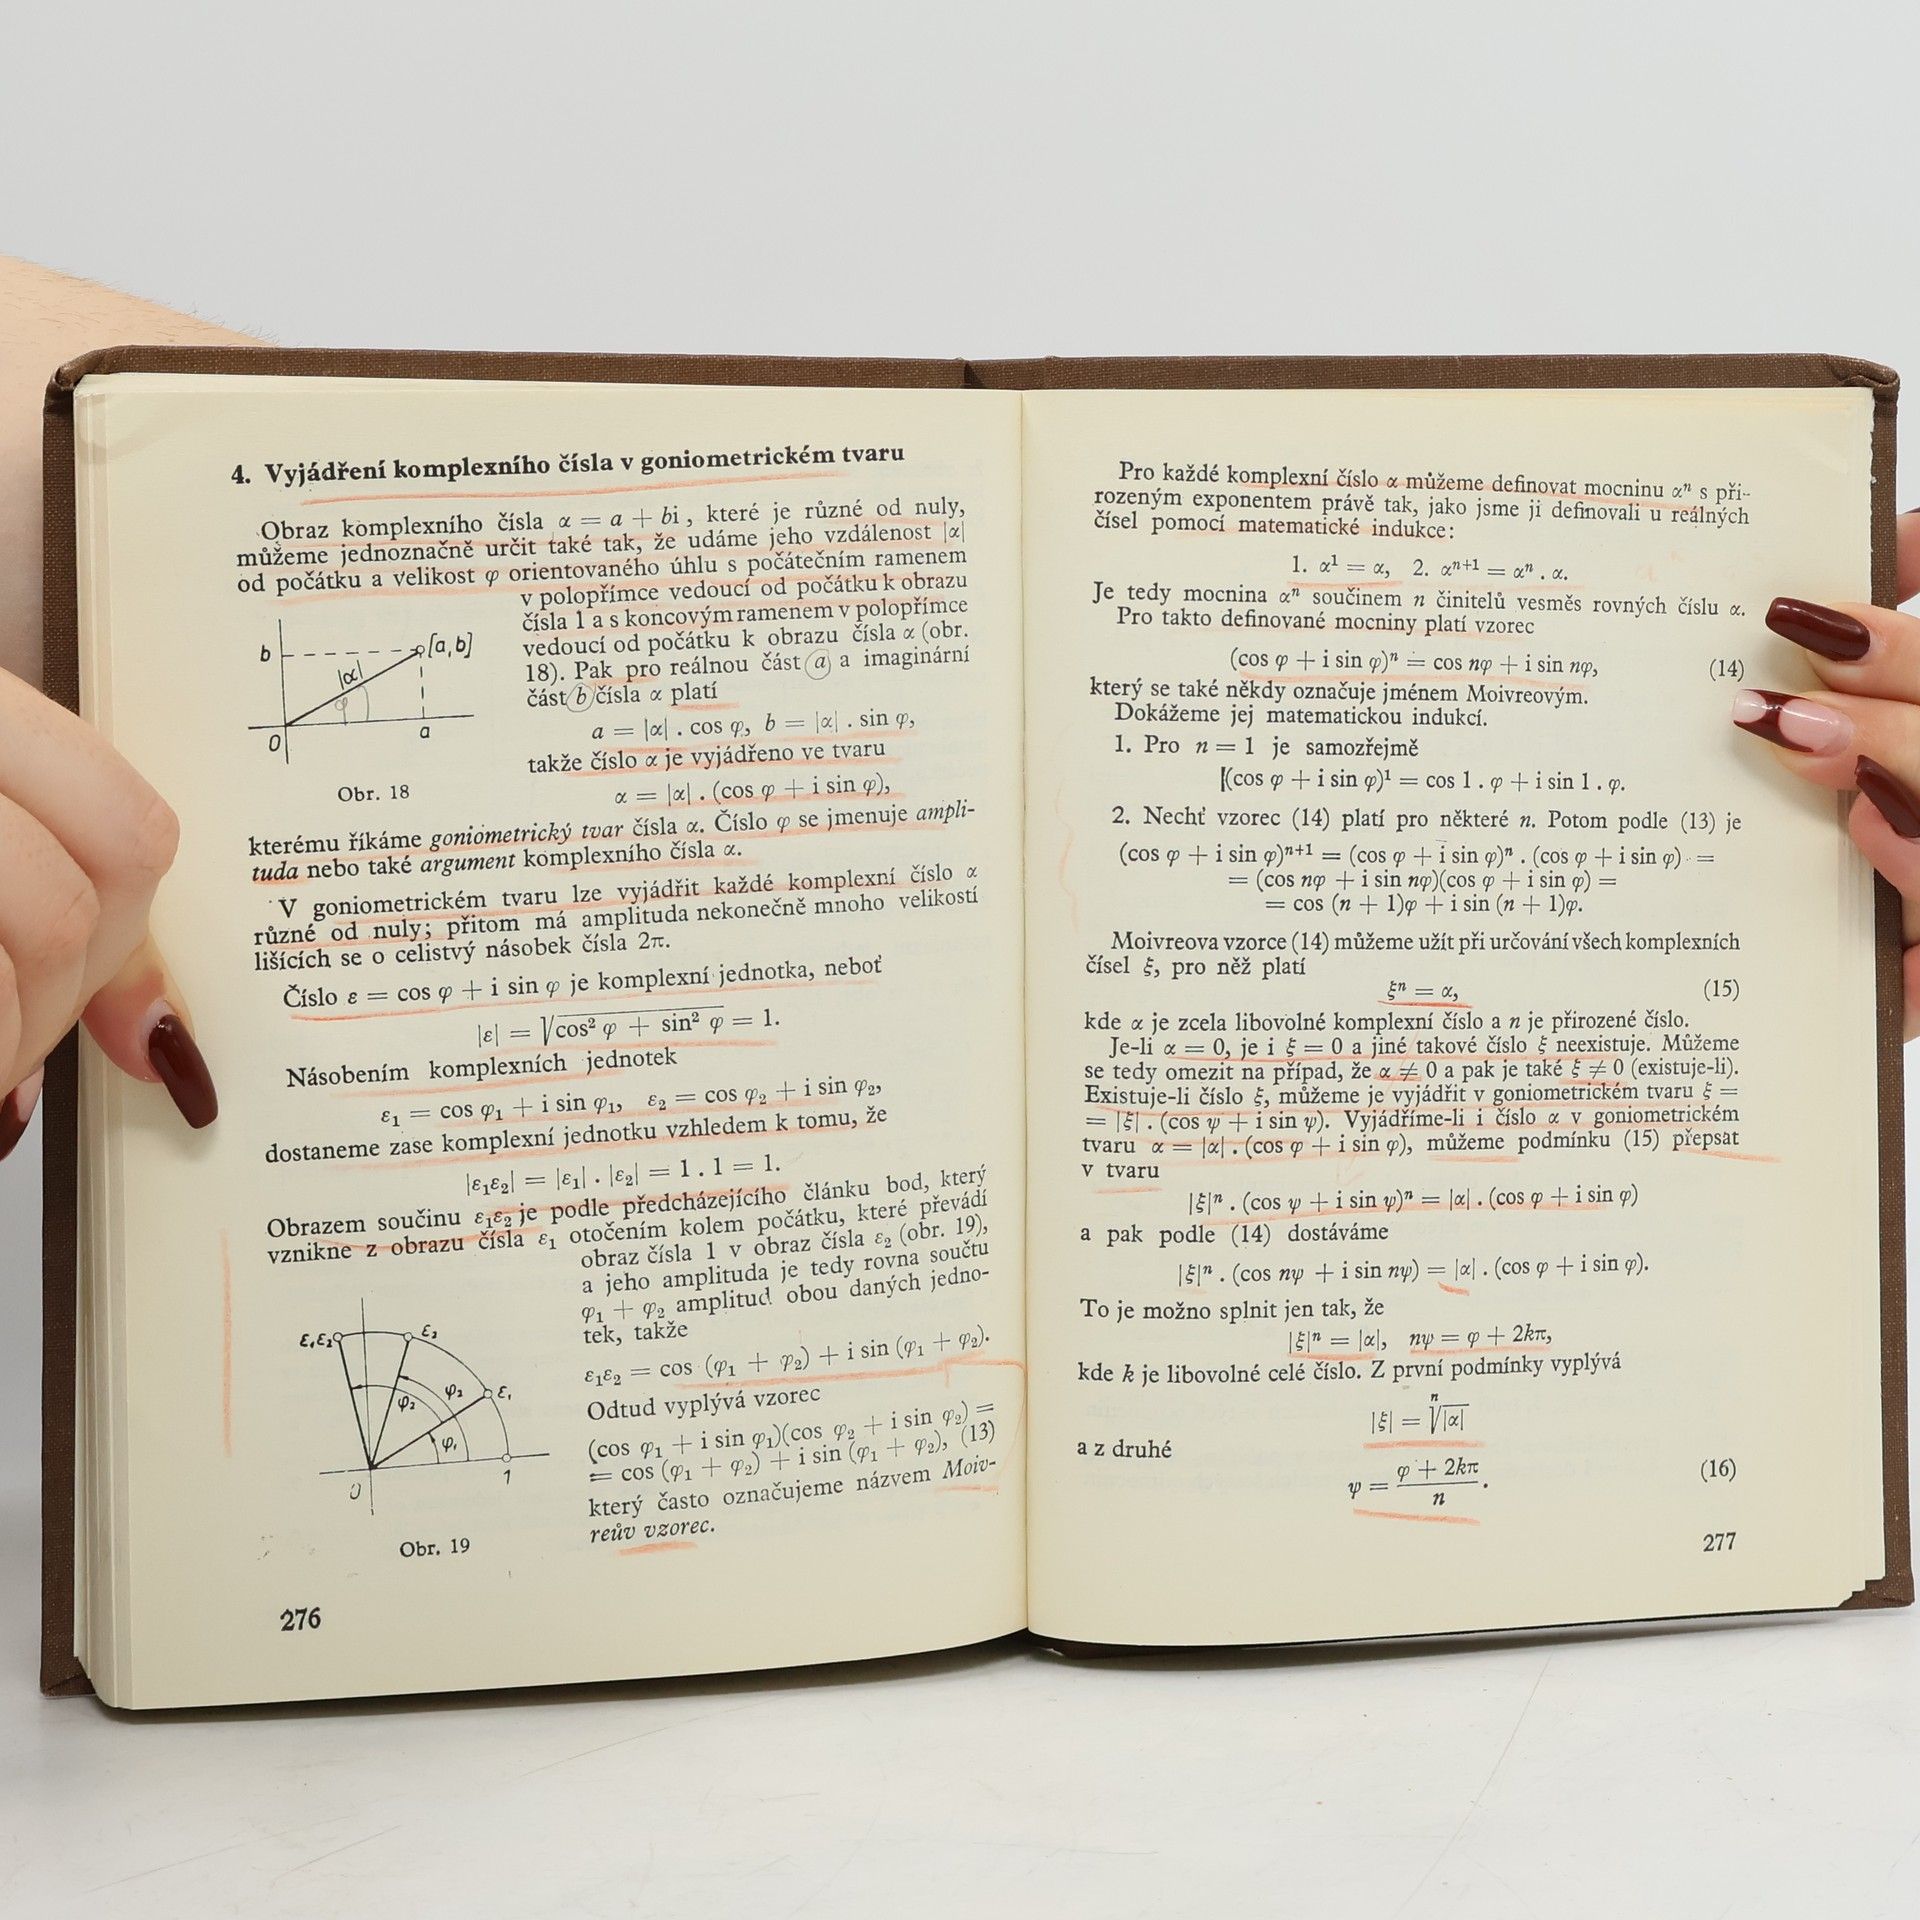 4. Vyjádření komplexního čísla v goniometrickém tvaru
Obraz komplexního čísla α = a + bi, které je různé od nuly,
můžeme jednoznačně určit také tak, že udáme jeho vzdálenost |α|
od počátku a velikost φ orientovaného úhlu s počátečním ramenem
v polopřímce vedoucí od počátku k obrazu
čísla 1 a s koncovým ramenem v polopřímce
vedoucí od počátku k obrazu čísla α (obr.
18). Pak pro reálnou část a a imaginární
část b čísla α platí
a = |α| . cos φ, b = |α| . sin φ,
takže číslo α je vyjádřeno ve tvaru
α = |α| . (cos φ + i sin φ),
b
[a,b]
|α|
φ
0
a
Obr. 18
kterému říkáme goniometrický tvar čísla α. Číslo φ se jmenuje ampli-
tuda nebo také argument komplexního čísla α.
V goniometrickém tvaru lze vyjádřit každé komplexní číslo α
různé od nuly; přitom má amplituda nekonečně mnoho velikostí
lišících se o celistvý násobek čísla 2π.
Číslo ε = cos φ + i sin φ je komplexní jednotka, neboť
|ε| = √cos² φ + sin² φ = 1.
Násobením komplexních jednotek
ε₁ = cos φ₁ + i sin φ₁, ε₂ = cos φ₂ + i sin φ₂,
dostaneme zase komplexní jednotku vzhledem k tomu, že
|ε₁ε₂| = |ε₁| . |ε₂| = 1 . 1 = 1.
Obrazem součinu ε₁ε₂ je podle předcházejícího článku bod, který
vznikne z obrazu čísla ε₁ otočením kolem počátku, které převádí
obraz čísla 1 v obraz čísla ε₂ (obr. 19),
a jeho amplituda je tedy rovna součtu
φ₁ + φ₂ amplitud obou daných jedno-
tek, takže
ε₁ε₂ = cos (φ₁ + φ₂) + i sin (φ₁ + φ₂).
Odtud vyplývá vzorec
(cos φ₁ + i sin φ₁)(cos φ₂ + i sin φ₂) =
= cos (φ₁ + φ₂) + i sin (φ₁ + φ₂), (13)
který často označujeme názvem Moiv-
reův vzorec.
ε₁ε₂
ε₂
ε₁
φ₂
φ₂
φ₁
0
1
Obr. 19
276
Pro každé komplexní číslo α můžeme definovat mocninu αⁿ s při-
rozeným exponentem právě tak, jako jsme ji definovali u reálných
čísel pomocí matematické indukce:
1. α¹ = α, 2. αⁿ⁺¹ = αⁿ . α.
Je tedy mocnina αⁿ součinem n činitelů vesměs rovných číslu α.
Pro takto definované mocniny platí vzorec
(cos φ + i sin φ)ⁿ = cos nφ + i sin nφ, (14)
který se také někdy označuje jménem Moivreovým.
Dokážeme jej matematickou indukcí.
1. Pro n = 1 je samozřejmě
(cos φ + i sin φ)¹ = cos 1 . φ + i sin 1 . φ.
2. Nechť vzorec (14) platí pro některé n. Potom podle (13) je
(cos φ + i sin φ)ⁿ⁺¹ = (cos φ + i sin φ)ⁿ . (cos φ + i sin φ) =
= (cos nφ + i sin nφ)(cos φ + i sin φ) =
= cos (n + 1)φ + i sin (n + 1)φ.
Moivreova vzorce (14) můžeme užít při určování všech komplexních
čísel ξ, pro něž platí
ξⁿ = α, (15)
kde α je zcela libovolné komplexní číslo a n je přirozené číslo.
Je-li α = 0, je i ξ = 0 a jiné takové číslo ξ neexistuje. Můžeme
se tedy omezit na případ, že α ≠ 0 a pak je také ξ ≠ 0 (existuje-li).
Existuje-li číslo ξ, můžeme je vyjádřit v goniometrickém tvaru ξ =
= |ξ| . (cos ψ + i sin ψ). Vyjádříme-li i číslo α v goniometrickém
tvaru α = |α| . (cos φ + i sin φ), můžeme podmínku (15) přepsat
v tvaru
|ξ|ⁿ . (cos ψ + i sin ψ)ⁿ = |α| . (cos φ + i sin φ)
a pak podle (14) dostáváme
|ξ|ⁿ . (cos nψ + i sin nψ) = |α| . (cos φ + i sin φ).
To je možno splnit jen tak, že
|ξ|ⁿ = |α|, nψ = φ + 2kπ,
kde k je libovolné celé číslo. Z první podmínky vyplývá
|ξ| = ⁿ√|α|
a z druhé
ψ = (φ + 2kπ)/n . (16)
277